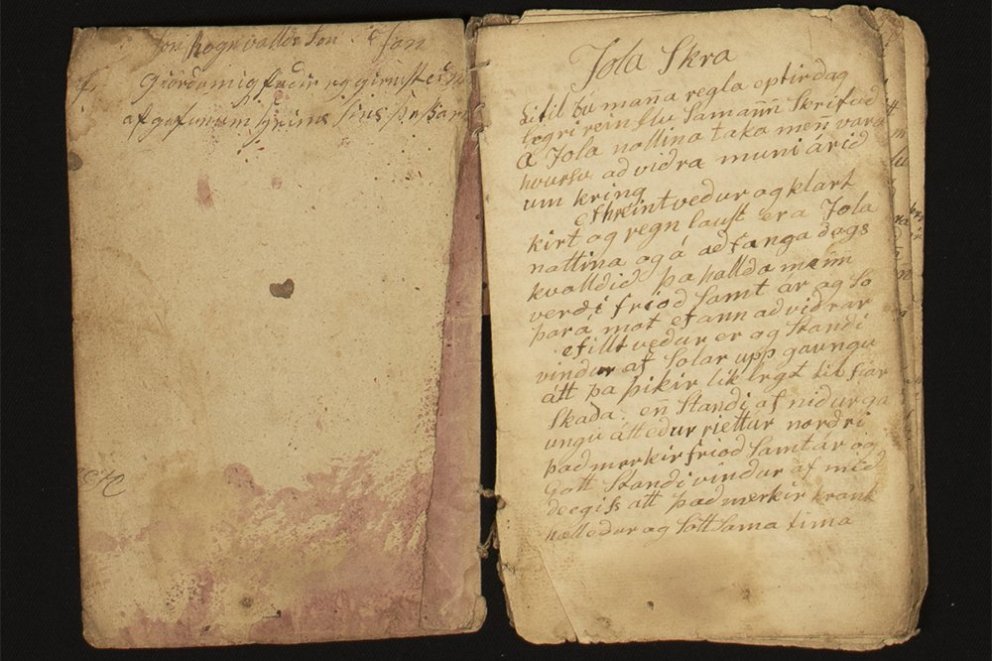 Jon Rognvallds son Jon
Giördu mig fadir og
af gefnum
Jola Skra
Litil bu maña regla eptir dag
legri rein slu Samann Skrifud
A Jola nottina taka meñ vara
hvursu ad vidra muni árid
um kring
ef hreint vedur og klart
kirt og regn laust er a Jola
nattina og á adfanga dags
kvalldid þa hallda menn
verdi friod Samt ár og So
þara mot ef ann ad vidrar
ef illt vedur er og Standi
vindur af Solar upp gaungu
átt þa þikir lik legt til fiar
Skada. en Standi af nidurga
ungu átt edur riettur nordri
þad merkir friod Samt ár og
Gott Standi vindur af mid
degiss att þad merkir krank
nælledur og Sott Sama tima